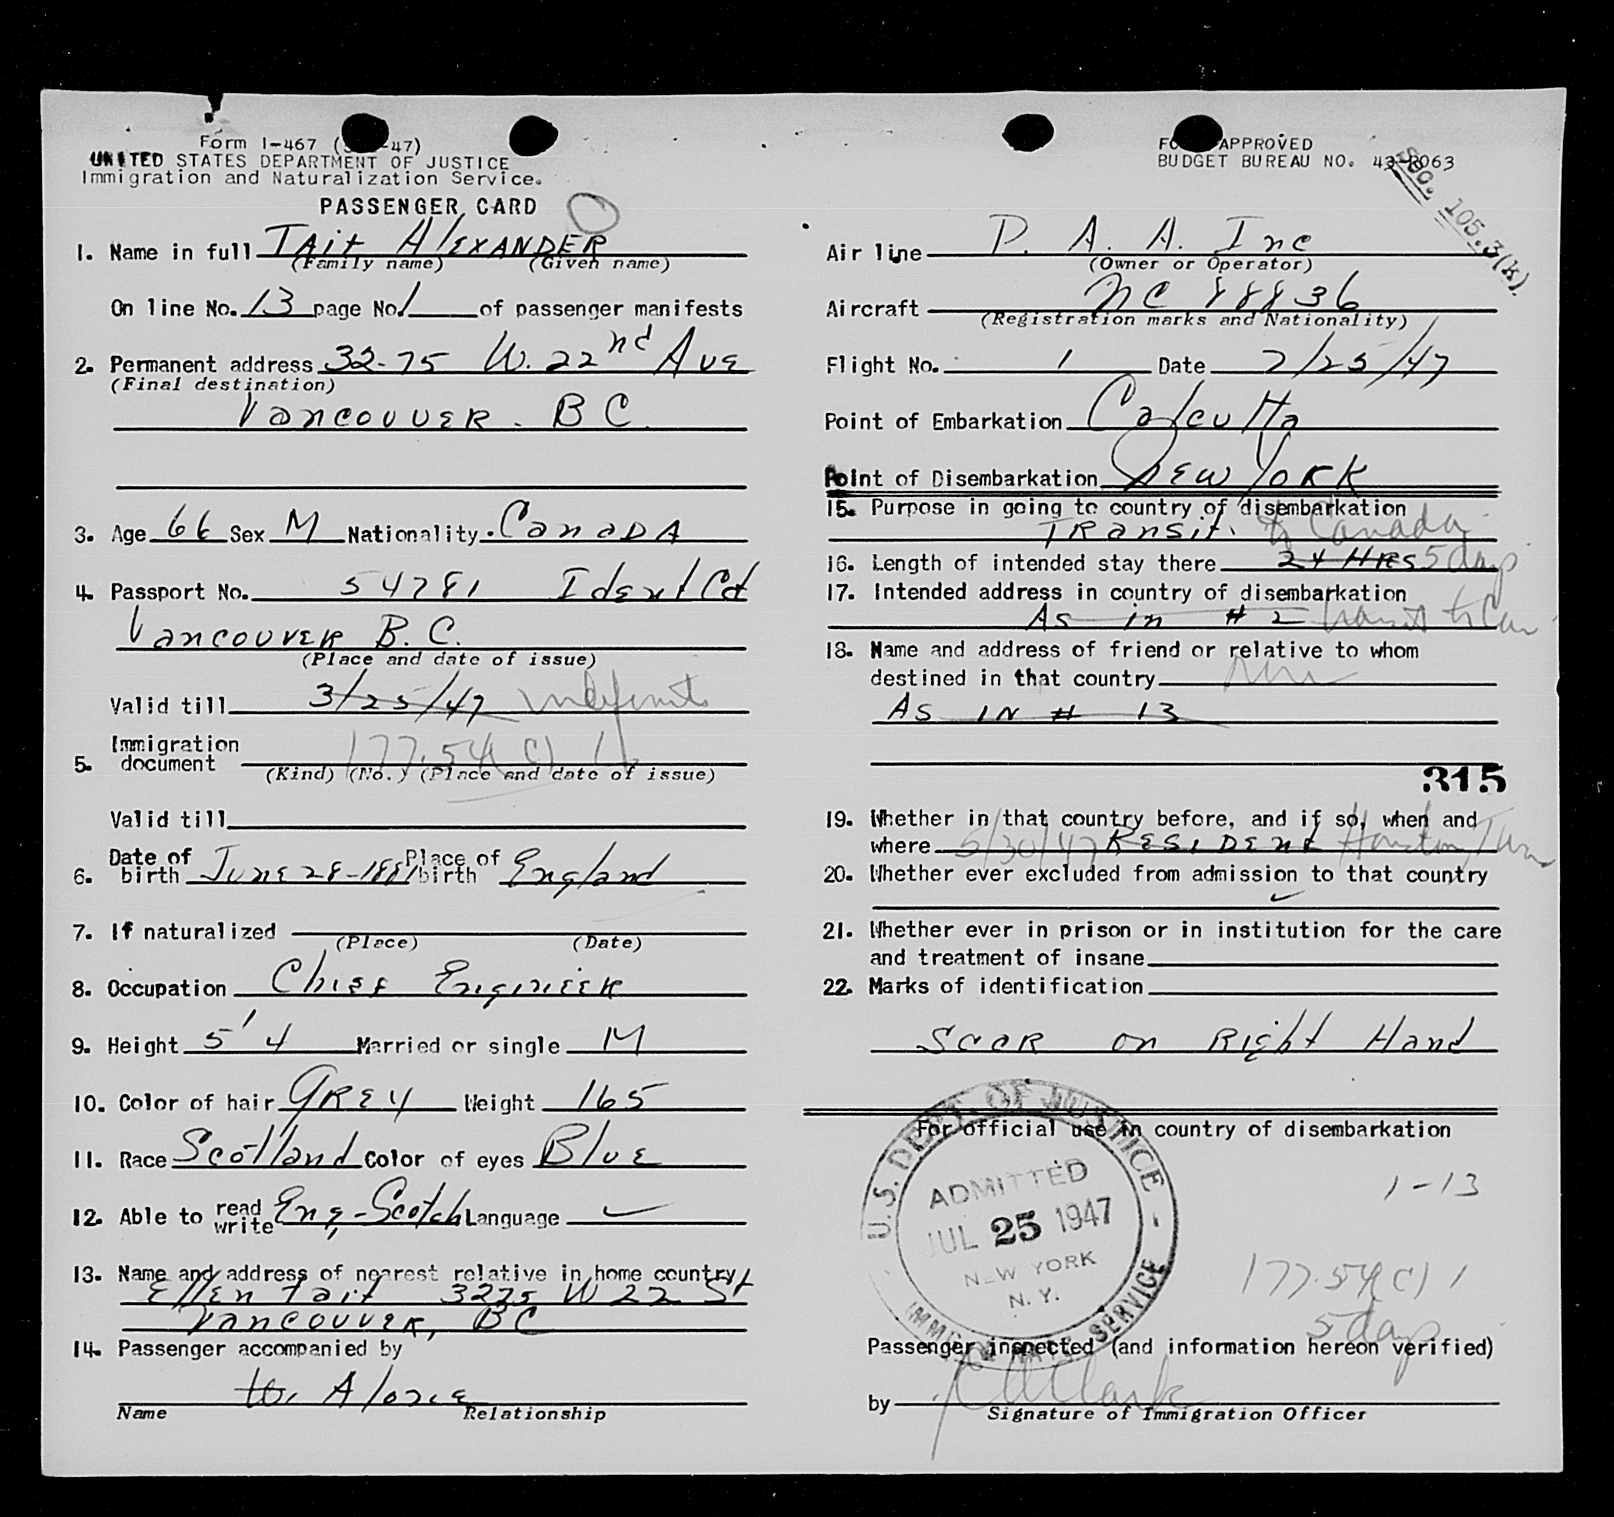 Form 1-467 ( -47)
UNITED STATES DEPARTMENT OF JUSTICE
Immigration and Naturalization Service.
PASSENGER CARD
1. Name in full TAit AlExANDER
(Family name) (Given name)
On line No. 13 page No. 1 of passenger manifests
2. Permanent address 32-75 W. 22nd AVE
(Final destination)
VANCOUVER. B C.
3. Age 66 Sex M Nationality. CANADA
4. Passport No. 54781 Ident Cd
VANCOUVER B. C.
(Place and date of issue)
Valid till 3/25/47 indefinite
5. Immigration document 177.54(C) 1
(Kind) (No.) (Place and date of issue)
Valid till
6. Date of birth JUNE 28-1881 Place of birth England
7. If naturalized
(Place) (Date)
8. Occupation Chief Engineer
9. Height 5' 4 Married or single M
10. Color of hair GREY Weight 165
11. Race Scotland Color of eyes Blue
12. Able to read write Eng-Scotch Language ✓
13. Name and address of nearest relative in home country
Ellen Tait 3275 W 22 St
VANCOUVER, BC
14. Passenger accompanied by
Alone
Name Relationship
APPROVED
BUDGET BUREAU NO. 43-R063
Sec. 105.3(k).
Air line P. A. A. Inc
(Owner or Operator)
Aircraft NC 88836
(Registration marks and Nationality)
Flight No. 1 Date 7/25/47
Point of Embarkation Calcutta
Point of Disembarkation NEW YORK
15. Purpose in going to country of disembarkation
TRANSit. to Canada
16. Length of intended stay there 24 HRS 5 days
17. Intended address in country of disembarkation
As in # 2 transit to Can
18. Name and address of friend or relative to whom
destined in that country
AS IN # 13
315
19. Whether in that country before, and if so, when and
where 5/30/47 RESIDENt Houston,
20. Whether ever excluded from admission to that country
✓
21. Whether ever in prison or in institution for the care
and treatment of insane
22. Marks of identification
SCAR on Right Hand
For official use in country of disembarkation
U.S. DEPT. OF JUSTICE
ADMITTED
JUL 25 1947
NEW YORK
N. Y.
SERVICE
1-13
177.54(C) 1
5 days
Passenger inspected (and information hereon verified)
by Clark
Signature of Immigration Officer